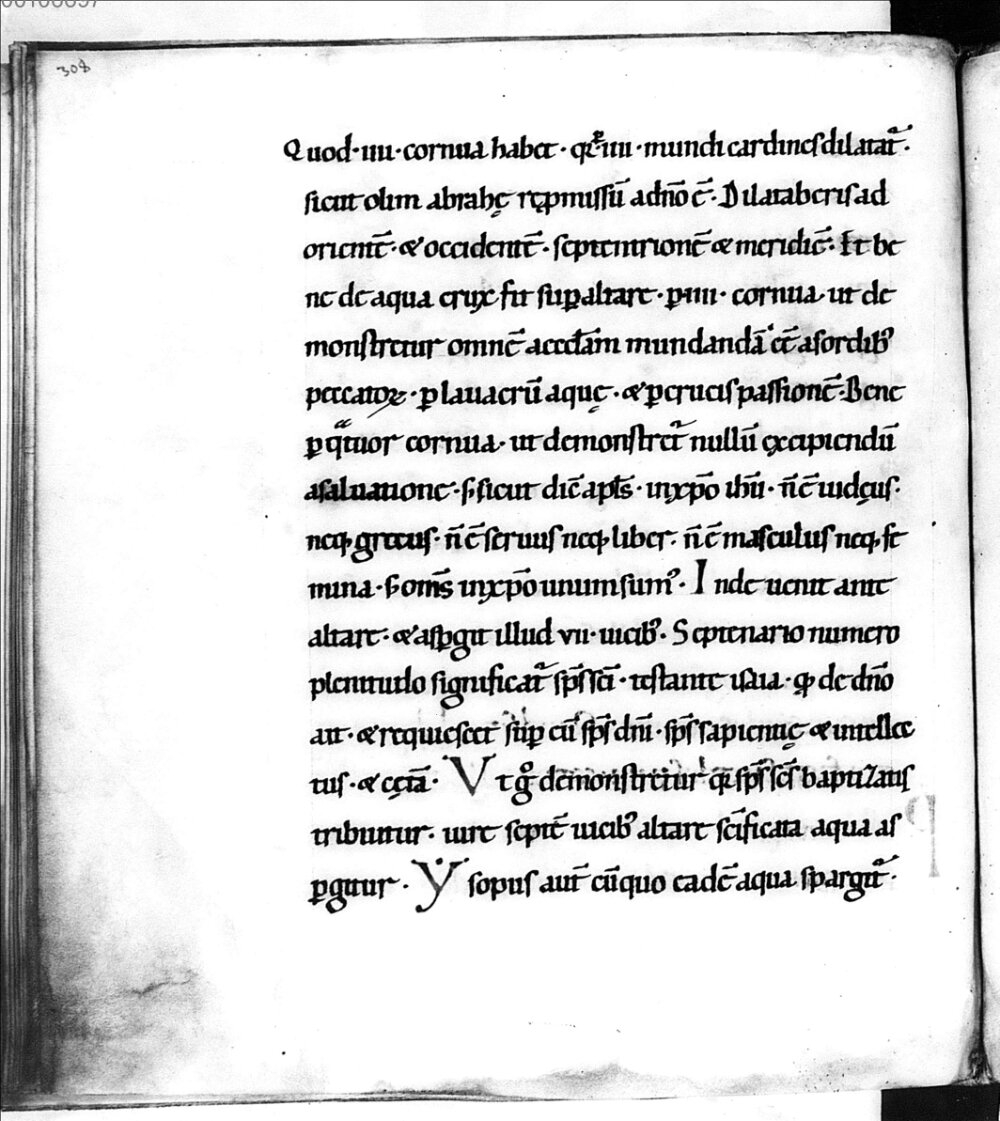 308
Quod·iiii·cornua habet·q̅ iiii·mundi cardines dilatat᷑·
sicut olim abrahę rep̱missū adn̄o ē·Dilataberis ad
orientē·& occidentē·septentrionē & meridiē·Et be
ne de aqua crux fit sup̱ altare·p̱ iiii·cornua·ut de
monstretur omnē accłam mundandā eē̄ asordib᷒
peccatoꝝ·p̱ lauacrū aquę·& p̱ crucis passionē·Bene
p̱ qͣtuor cornua·ut demonstret᷑ nullū excipiendū
asaluatione·s̄ sicut dic̄ apłs·inxp̄o ihū·n̄ ē iudęus·
neq; grecus·n̄ ē seruus neq; liber·n̄ ē masculus neq; fe
mina·s̄ om̄s inxp̄o unum sum᷒·Inde uenit ante
altare·& asp̱git illud vii·uicib᷒·Septenario numero
plenitudo significat᷑ sp̄s sc̄i·testante isaia·qͥ de dn̄o
ait·& requiescet sup̱ eū sp̄s dn̄i·sp̄s sapientię & intellec
tus·& cęt̄a·Vt gͦ demonstretur qͥa sp̄s sc̄s baptizatis
tribuitur·iure septē uicib᷒ altare sc̄ificata aqua as
p̱gitur·Ysopus aut̄ cū quo eadē aqua spargit᷑·